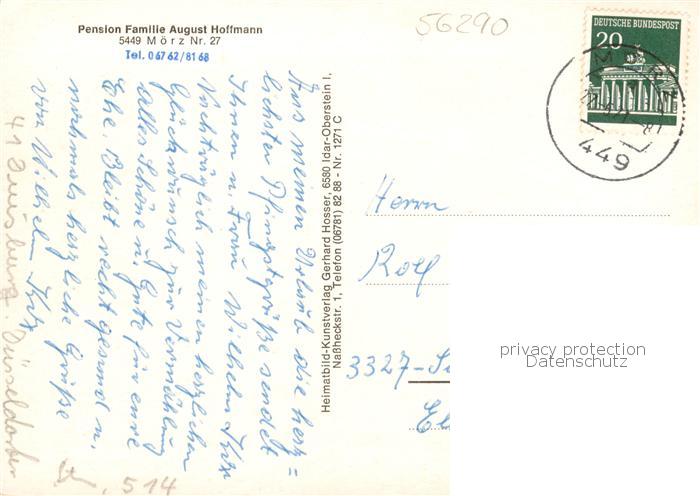 Pension Familie August Hoffmann
5449 Mörz Nr. 27
Tel. 06762/8168
56290
DEUTSCHE BUNDESPOST
20
449
Aus meinen Urlaub die herz=
lichsten Pfingstgrüße sendet
Ihnen u. Frau Wilhelm
Nachträglich meinen herzlichen
Glückwunsch zur Vermählung
alles Schöne u. Gute für eure
Ehe. Bleibt recht gesund u.
nochmals herzliche Grüße
von Wilhelm
41 Duisburg. Düsseldorfer
514
Heimatbild-Kunstverlag Gerhard Hosser, 6580 Idar-Oberstein I,
Naßheckstr. 1, Telefon (06781) 82 88 - Nr. 1271 C
Herrn
Rolf
3327-
privacy protection
Datenschutz